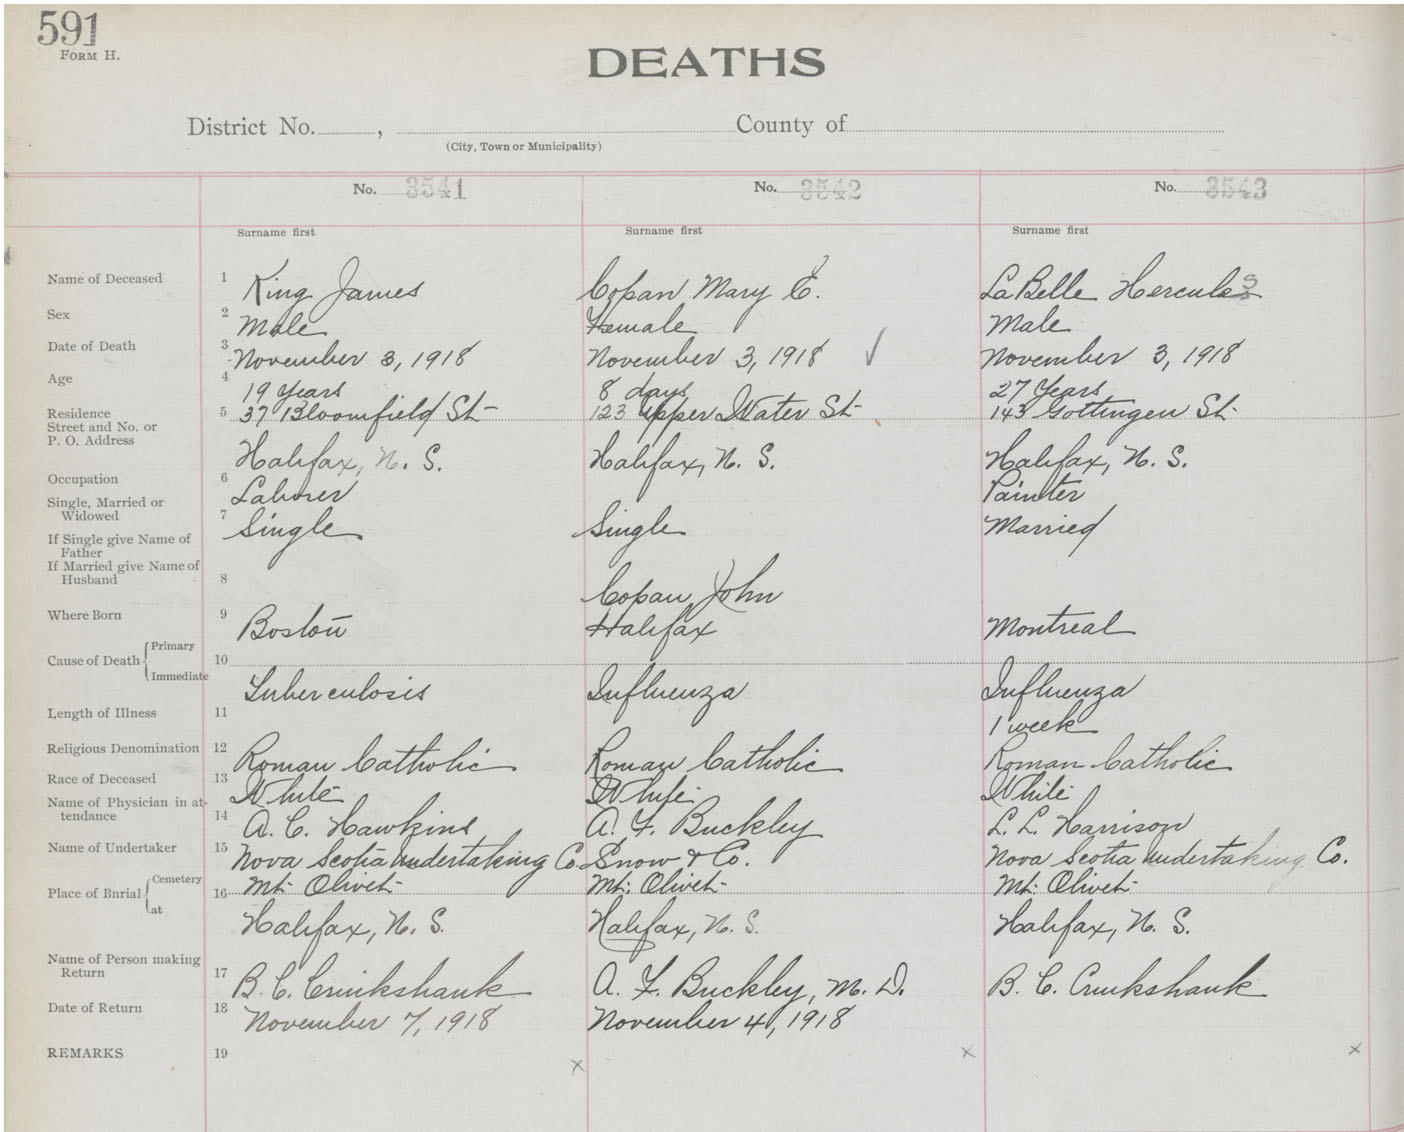 591
FORM H.
DEATHS
District No. , County of
(City, Town or Municipality)
No. 3541 No. 3542 No. 3543
Surname first Surname first Surname first
Name of Deceased 1 King James Copan Mary E. LaBelle Hercules
Sex 2 Male Female Male
Date of Death 3 November 3, 1918 November 3, 1918 ✓ November 3, 1918
Age 4 19 Years 8 days 27 Years
Residence 5 37 Bloomfield St 123 Upper Water St 143 Gottingen St
Street and No. or
P. O. Address Halifax, N. S. Halifax, N. S. Halifax, N. S.
Occupation 6 Laborer Painter
Single, Married or
Widowed 7 Single Single Married
If Single give Name of
Father
If Married give Name of
Husband 8 Copan John
Where Born 9 Boston Halifax Montreal
Cause of Death Primary
Immediate 10 Tuberculosis Influenza Influenza
Length of Illness 11 1 week
Religious Denomination 12 Roman Catholic Roman Catholic Roman Catholic
Race of Deceased 13 White White White
Name of Physician in at-
tendance 14 A. C. Hawkins A. F. Buckley L. L. Harrison
Name of Undertaker 15 Nova Scotia Undertaking Co. Snow & Co. Nova Scotia Undertaking Co.
Place of Burial Cemetery 16 Mt. Olivet Mt. Olivet Mt. Olivet
at Halifax, N. S. Halifax, N. S. Halifax, N. S.
Name of Person making
Return 17 B. C. Cruikshank A. F. Buckley, M. D. B. C. Cruikshank
Date of Return 18 November 7, 1918 November 4, 1918
REMARKS 19 x x x